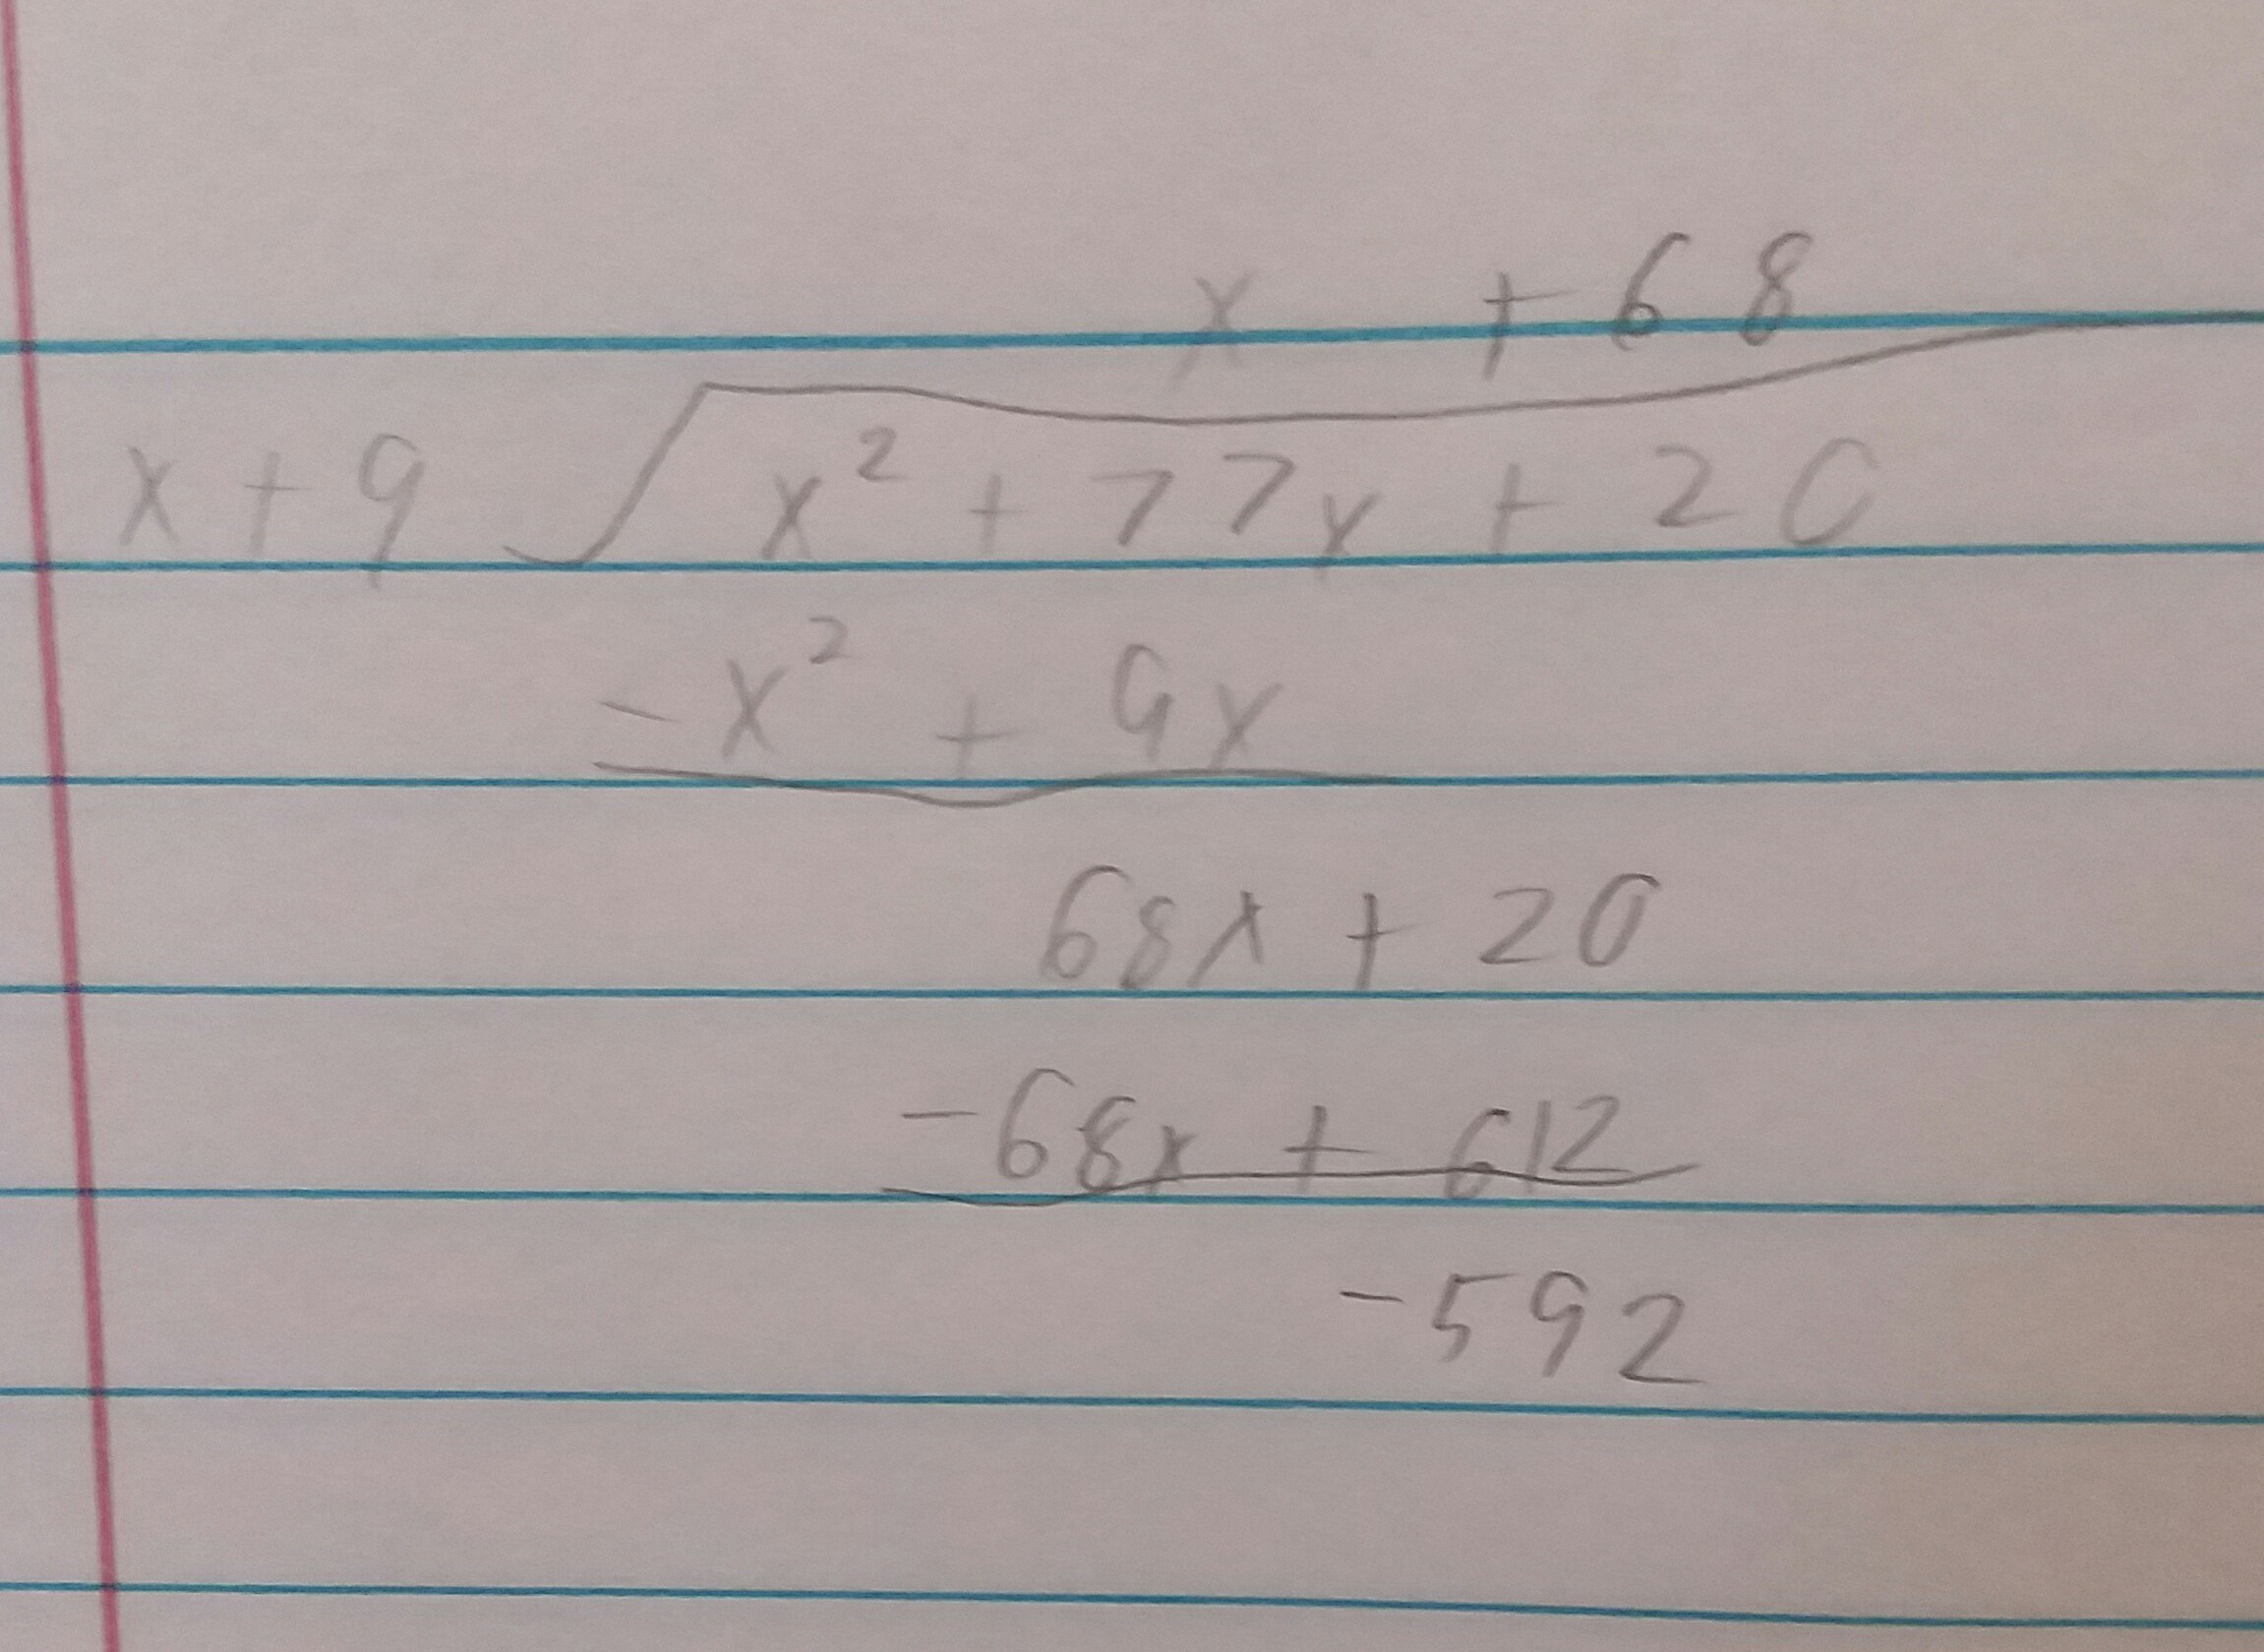 x + 68
x + 9 √ x² + 77x + 20
- x² + 9x
68x + 20
- 68x + 612
- 592